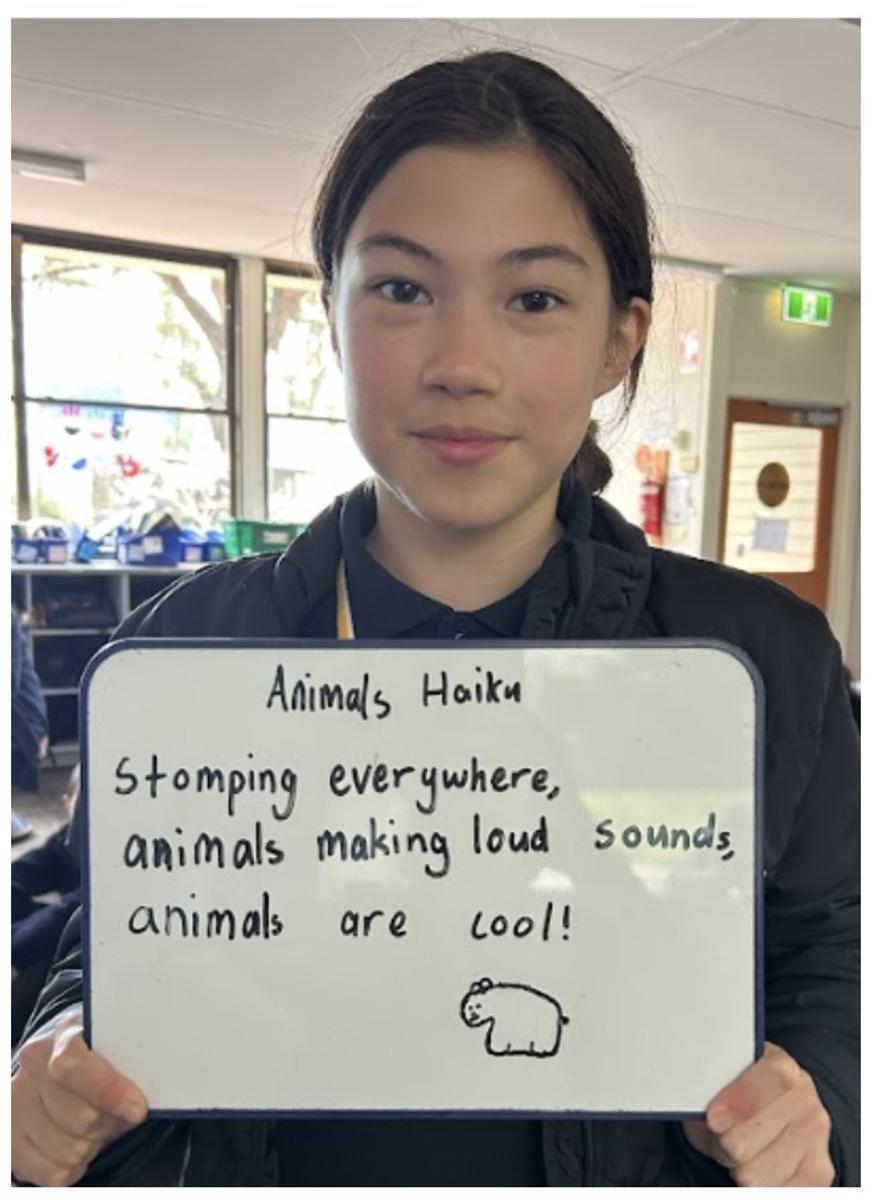 Animals Haiku
Stomping everywhere,
animals making loud sounds,
animals are cool!